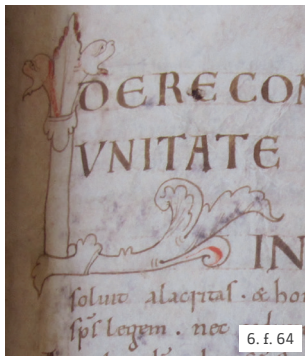 DERECON
VNITATE
IN
soluit alacritas. & hon
sps legem. nec
6. f. 64